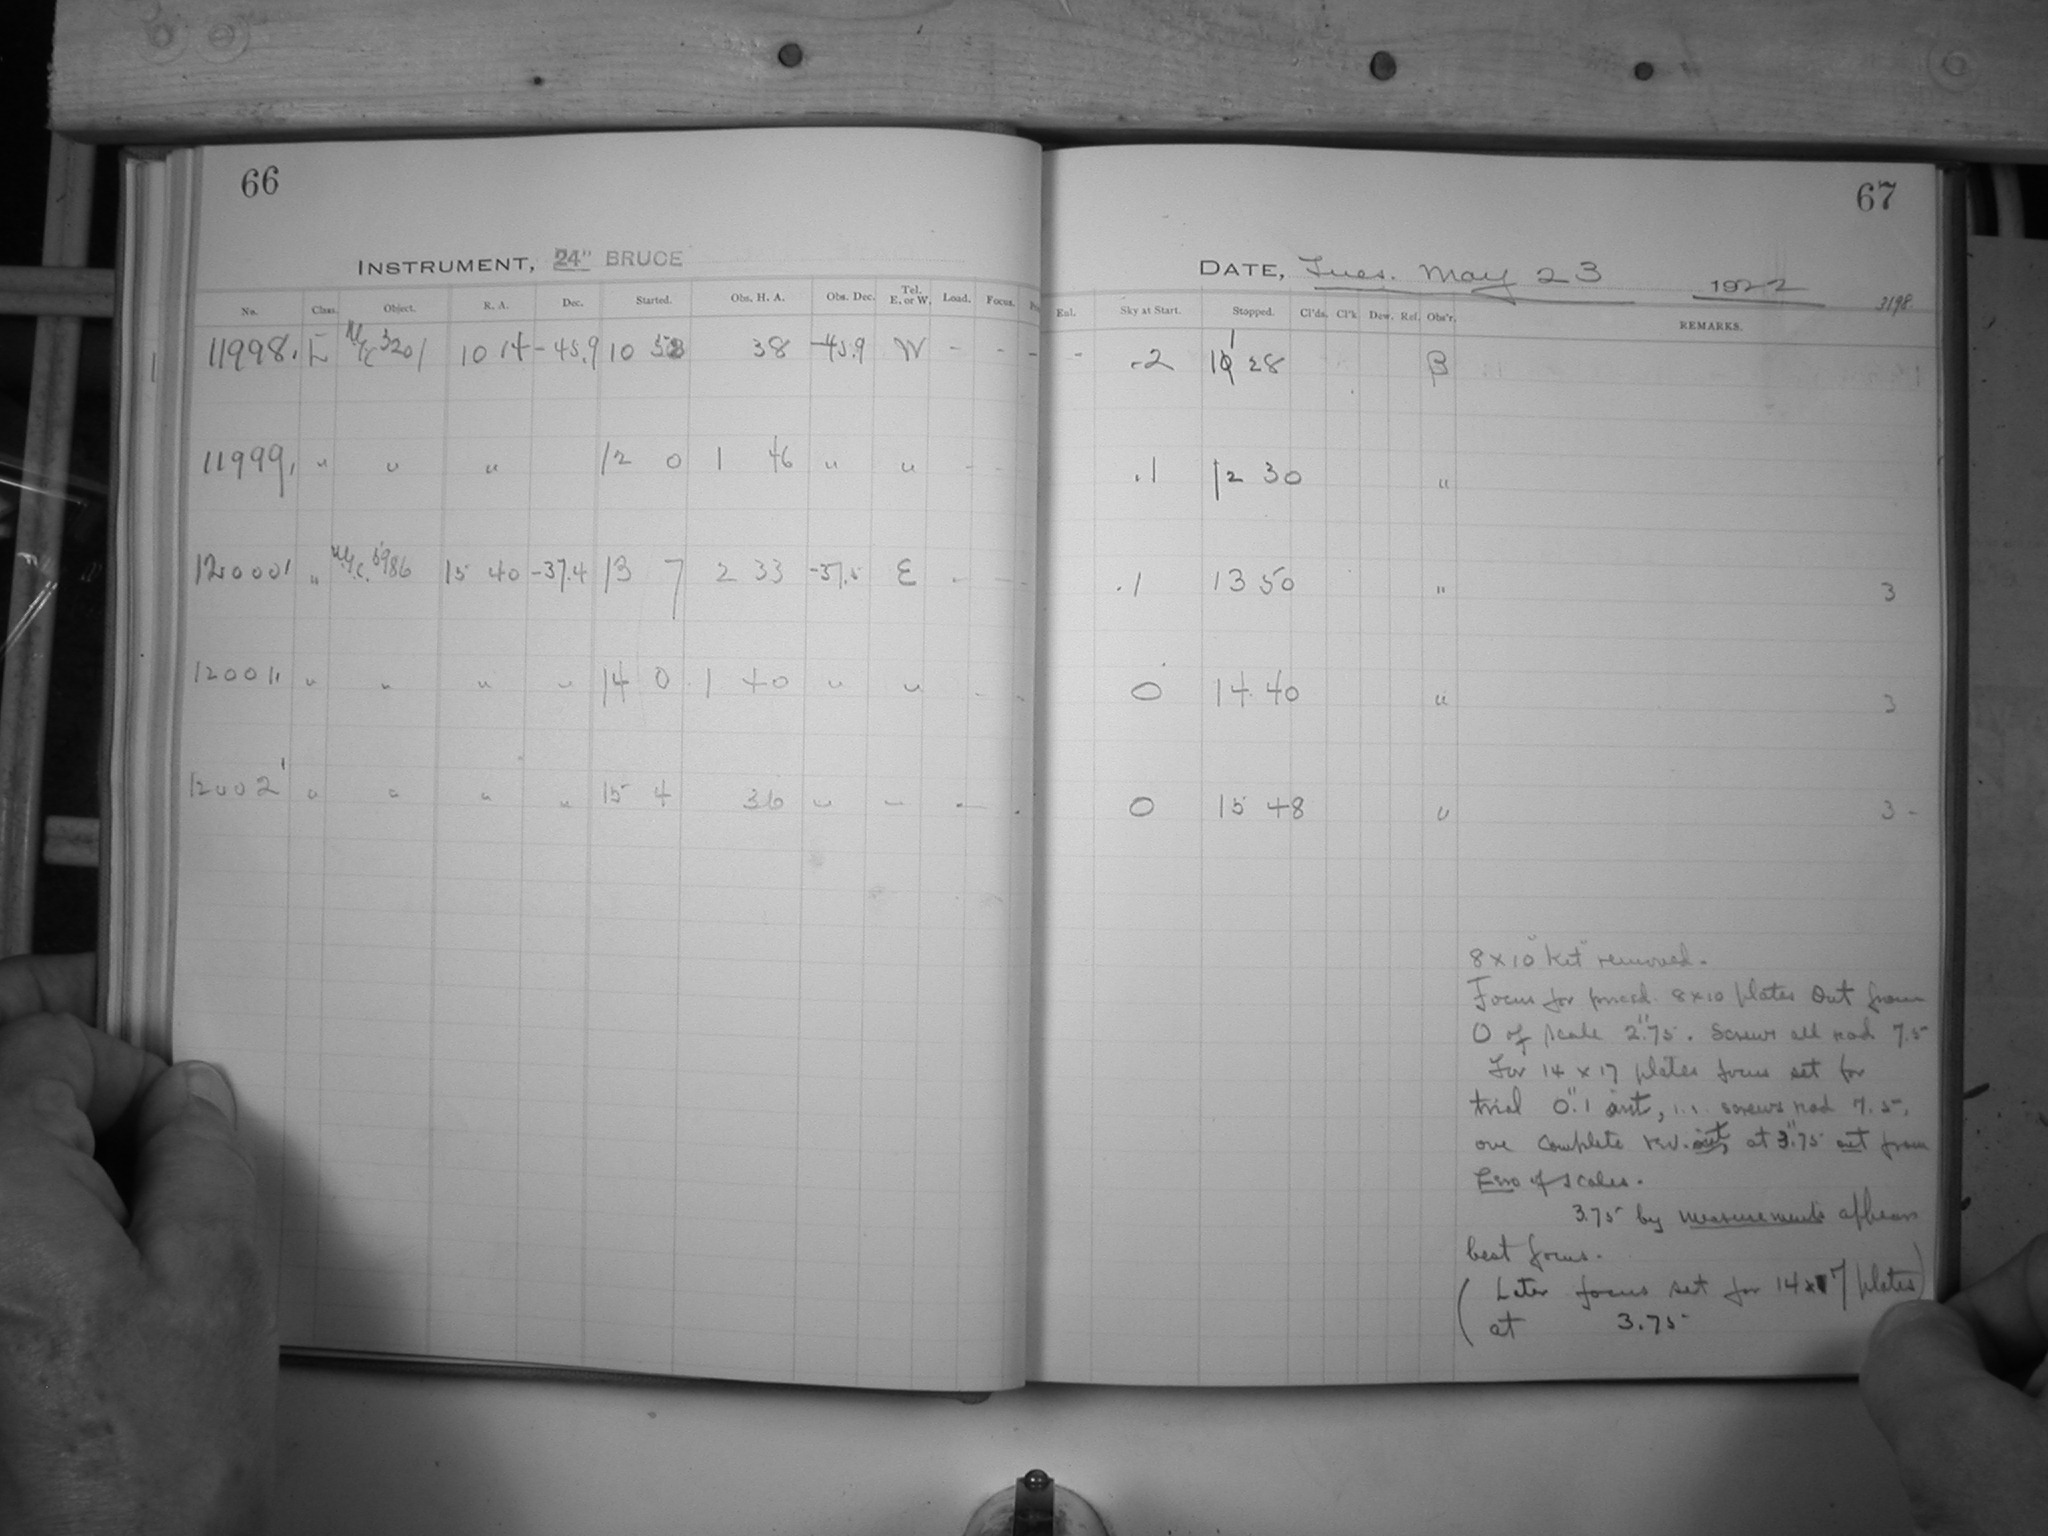 66
67
INSTRUMENT, 24" BRUCE
DATE, Tues. May 23 1922
3198
No. Class. Object. R. A. Dec. Started. Obs. H. A. Obs. Dec. Tel. E. or W. Load. Focus.
Eul. Sky at Start. Stopped. Cl'ds. Cl'k Dew. Ref. Obs'r. REMARKS.
11998. E 3201 10 14 -45.9 10 38 -45.9 W - - - - 28 B
11999, " " " 12 0 1 46 " " - - .1 12 30 "
12000 " 5986 15 40 -37.4 13 7 2 33 -37.5 E - - .1 13 50 " 3
12001, " " " " 14 0 1 40 " " - - 0 14 40 " 3
12002 " " " " 15 4 36 " - - 0 15 48 " 3 -
8 x 10 "Kit" removed.
Focus for 8x10 plates Out from
0 of scale 2".75. Screws all read 7.5
For 14 x 17 plates focus set for
trial 0".1 screws read 7.5,
one complete rev. out, at 3".75 out from
Zero of scales.
3.75 by measurements appears
best focus.
(Later focus set for 14x17 plates)
at 3.75